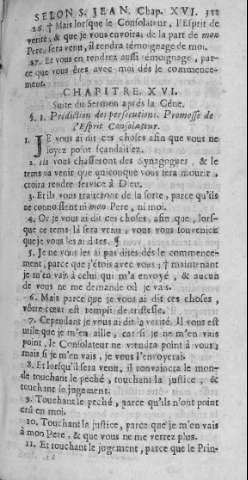 SELON S. JEAN. Chap. XVI.
26. † Mais lorsque le Consolateur, l'Esprit de
verité, & que je vous envoirai de la part de mon
Pere, sera venu, il rendra témoignage de moi.
27. Et vous en rendrez aussi témoignage, par-
ce que vous êtes avec moi dés le commence-
ment.
CHAPITRE. XVI.
Suite du Sermon aprés la Céne.
§. 1. Prédiction des persécutions. Promesse de
l'Esprit Consolateur.
1. JE vous ai dit ces choses afin que vous ne
soyez point scandalizez.
2. Ils vous chasseront des Synagogues, & le
tems va venir que quiconque vous fera mourir,
croira rendre service à Dieu.
3. Et ils vous traiteront de la sorte, parce qu'ils
ne connoissent ni mon Pere, ni moi.
4. Or je vous ai dit ces choses, afin que, lors-
que ce tems là sera venu, vous vous souveniez
que je vous les ai dites. ¶
5. Je ne vous les ai pas dites dés le commence-
ment, parce que j'étois avec vous; † maintenant
je m'en vais à celui qui m'a envoyé, & aucun
de vous ne me demande où je vais.
6. Mais parce que je vous ai dit ces choses,
vôtre cœur est rempli de tristesse.
7. Cependant je vous ai dit la verité. Il vous est
utile que je m'en aille, car si je ne m'en vais
point, le Consolateur ne viendra point à vous;
mais si je m'en vais, je vous l'envoyerai.
8. Et lorsqu'il sera venu, il convaincra le mon-
de touchant le peché, touchant la justice, &
touchant le jugement.
9. Touchant le peché, parce qu'ils n'ont point
crû en moi.
10. Touchant la justice, parce que je m'en vais
à mon Pere, & que vous ne me verrez plus.
11. Et touchant le jugement, parce que le Prin-